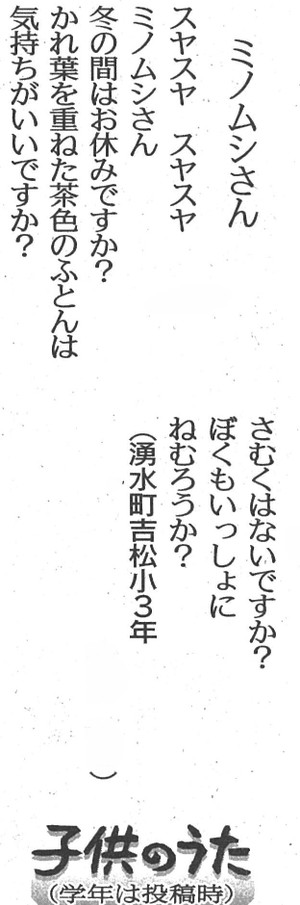 ミノムシさん
スヤスヤ　スヤスヤ
ミノムシさん
冬の間はお休みですか？
かれ葉を重ねた茶色のふとんは
気持ちがいいですか？
さむくはないですか？
ぼくもいっしょに
ねむろうか？
（湧水町吉松小３年
）
子供のうた
(学年は投稿時)